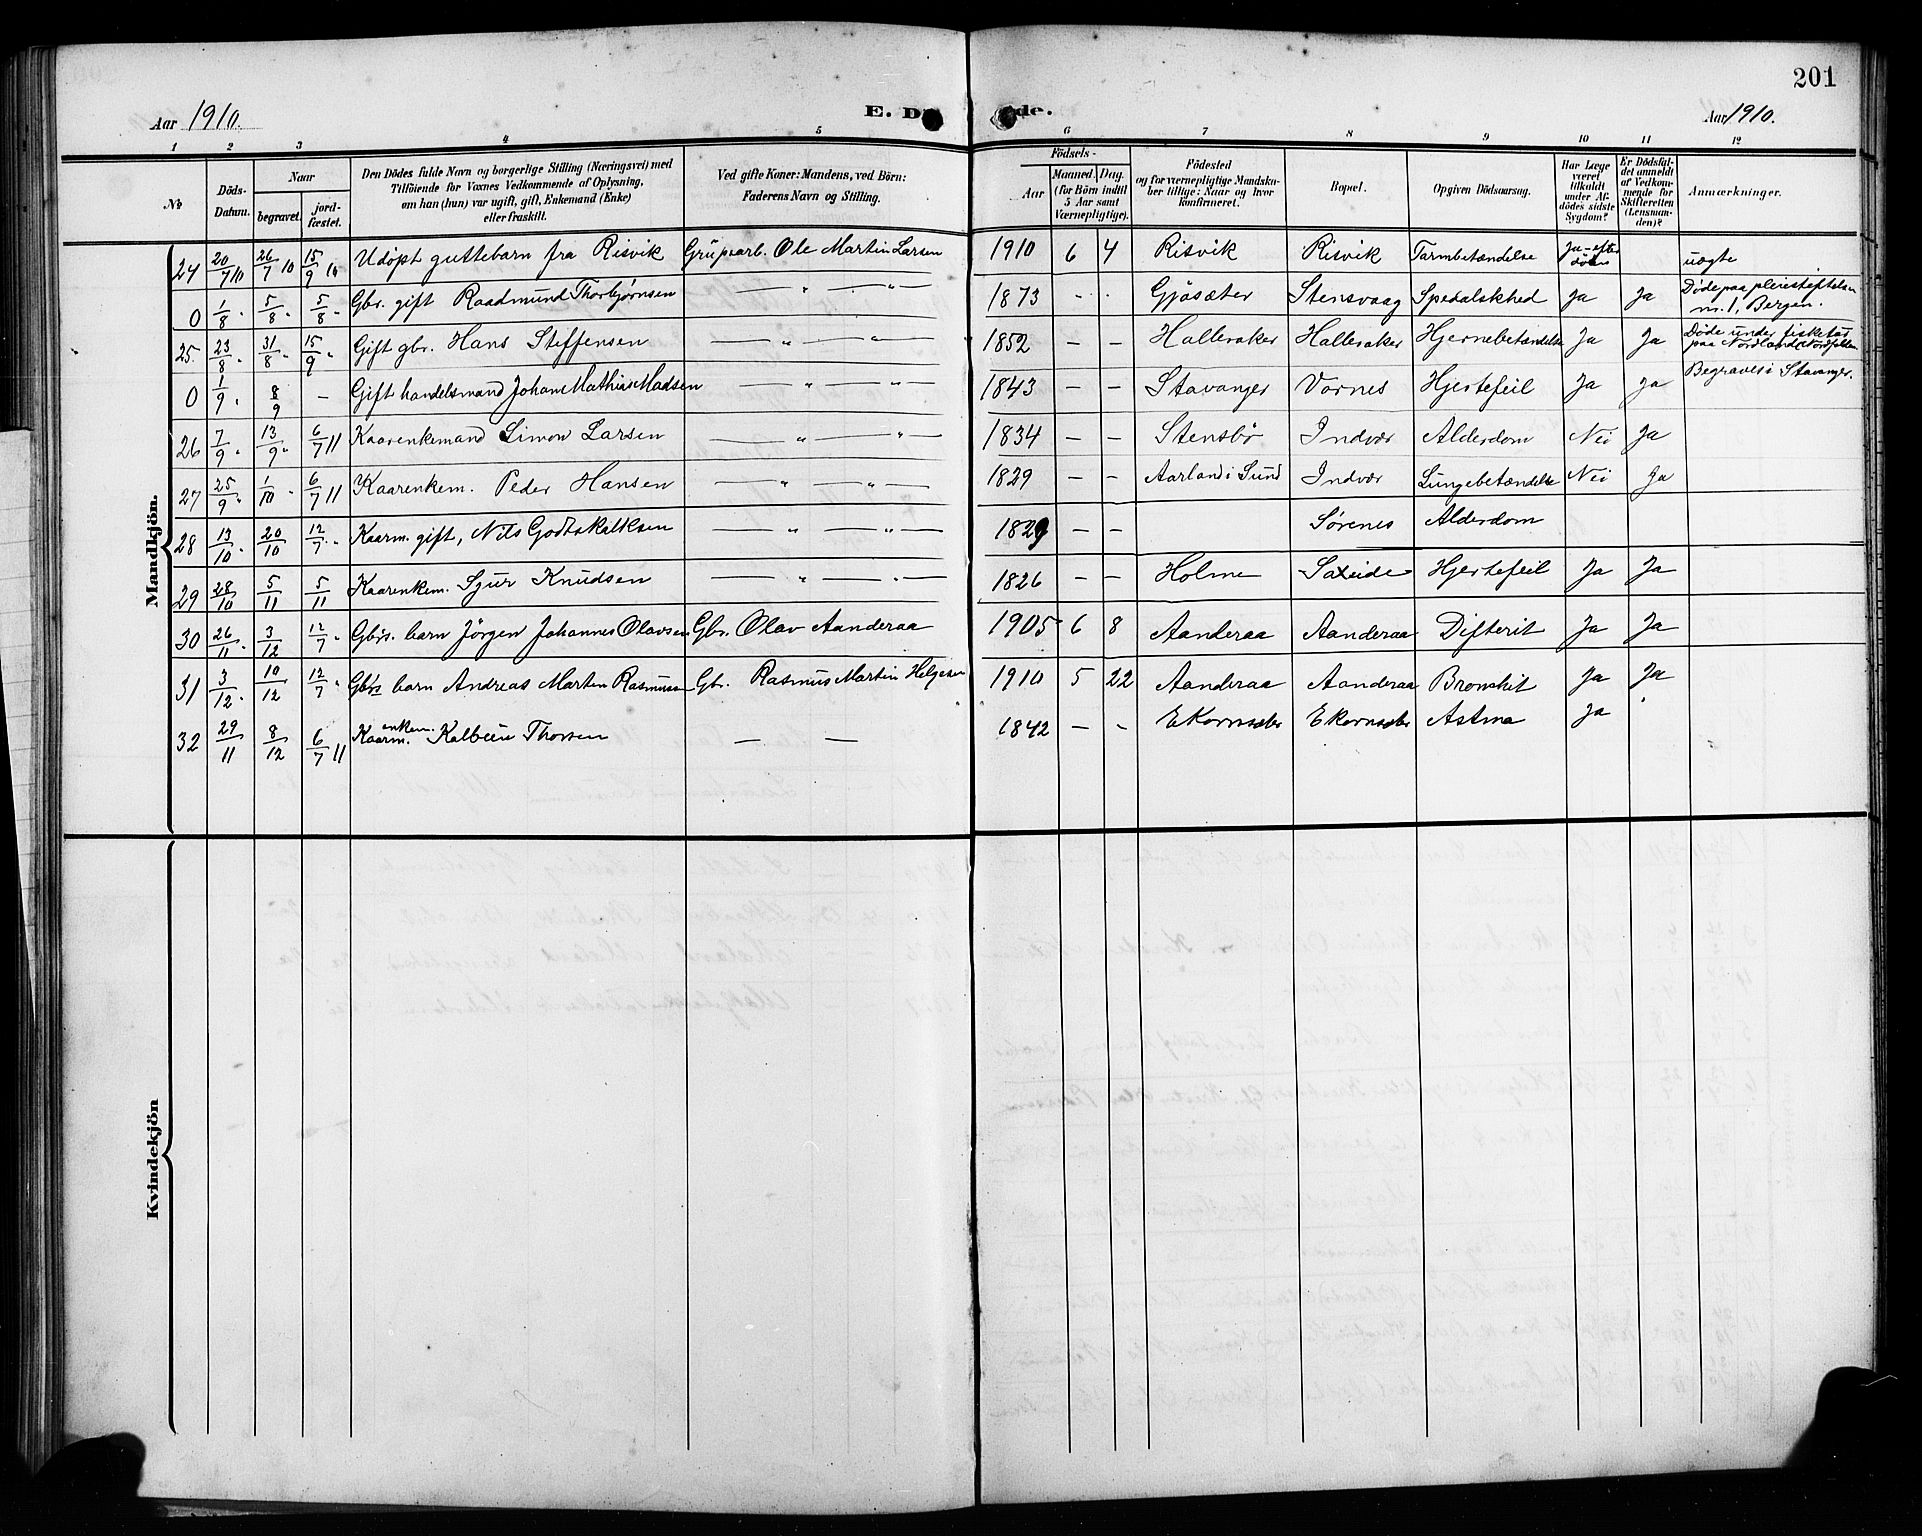 201
Aar 1910.
E. D de.
Aar 1910.
1 2 3 4 5 6 7 8 9 10 11 12
No
Döds-Datum.
Naar
begravet.
jord-fæstet.
Den Dödes fulde Navn og borgerlige Stilling (Næringsvei) med Tilföiende for Voxnes Vedkommende af Oplysning, om han (hun) var ugift, gift, Enkemand (Enke) eller fraskilt.
Ved gifte Koner: Mandens, ved Börn: Faderens Navn og Stilling.
Födsels-
Aar
Maaned. Dag.
(for Börn indtil 5 Aar samt Værnepligtige).
Födested og for værnepligtige Mandskaber tillige: Naar og hvor konfirmeret.
Bopæl.
Opgiven Dödsaarsag.
Har Læge været tilkaldt under Afdödes sidste Sygdom?
Er Dödsfaldet anmeldt af Vedkommende for Skifteretten (Lensmanden)?
Anmærkninger.
Mandkjön.
24 20/7 10 26/7 10 15/9 10 Udöpt guttebarn fra Risvik Ole Martin Larsen 1910 6 4 Risvik Risvik Tarmbetændelse Ja - efter döden uægte
0 1/8 " 5/8 " 5/8 " Gbr. gift Raadmund Thorbjørnsen — " — " — 1873 - - Gjøsæter Stensvaag Spedalskhed Ja Ja Døde paa pleiestiftelsen nr. 1, Bergen.
25. 23/8 " 31/8 " 15/9 " Gift gbr. Hans Steffensen — " — " — 1852 - - Halleraker Halleraker Hjernebetændelse Ja Ja Døde under fisketur paa Nordland
0 1/9 " 8/9 — Gift handelsmand Johan Mathias Madsen — " — " — 1843 - - Stavanger Vornes Hjertefeil Ja Ja Begravet i Stavanger.
26 7/9 " 13/9 " 6/7 11 Kaarenkemand Simon Larsen — " — " — 1834 - - Stensbø Indvær Alderdom Nei Ja
27 25/9 " 1/10 " 6/7 11 Kaarenkem. Peder Hansen — " — " — 1829 - - Aarland i Sund Indvær Lungebetændelse Nei Ja
28 13/10 " 20/10 12/7 " Kaarm. gift, Nils Godtskalksen — " — " — 1829 - - Sørenes Alderdom
29 28/10 5/11 5/11 Kaarenkem. Sjur Knudsen — " — " — 1826 - - Holme Sæleide Hjertefeil Ja Ja
30 26/11 " 3/12 12/7 " Gbrs. barn Jörgen Johannes Olavsen Gbr. Olav Aanderaa 1905 6 8 Aanderaa Aanderaa Difterit Ja Ja
31 3/12 " 10/12 12/7 " Gbrs barn Andreas Marten Rasmussen Gbr. Rasmus Martin Helgesen 1910 5 22 Aanderaa Aanderaa Bronchit Ja Ja
32 29/11 8/12 6/7 11 Kaarm. enkem. Kolbein Thorsen — — 1842 - - Ekornsæter Ekornsæter Astma Ja
Kvindekjön